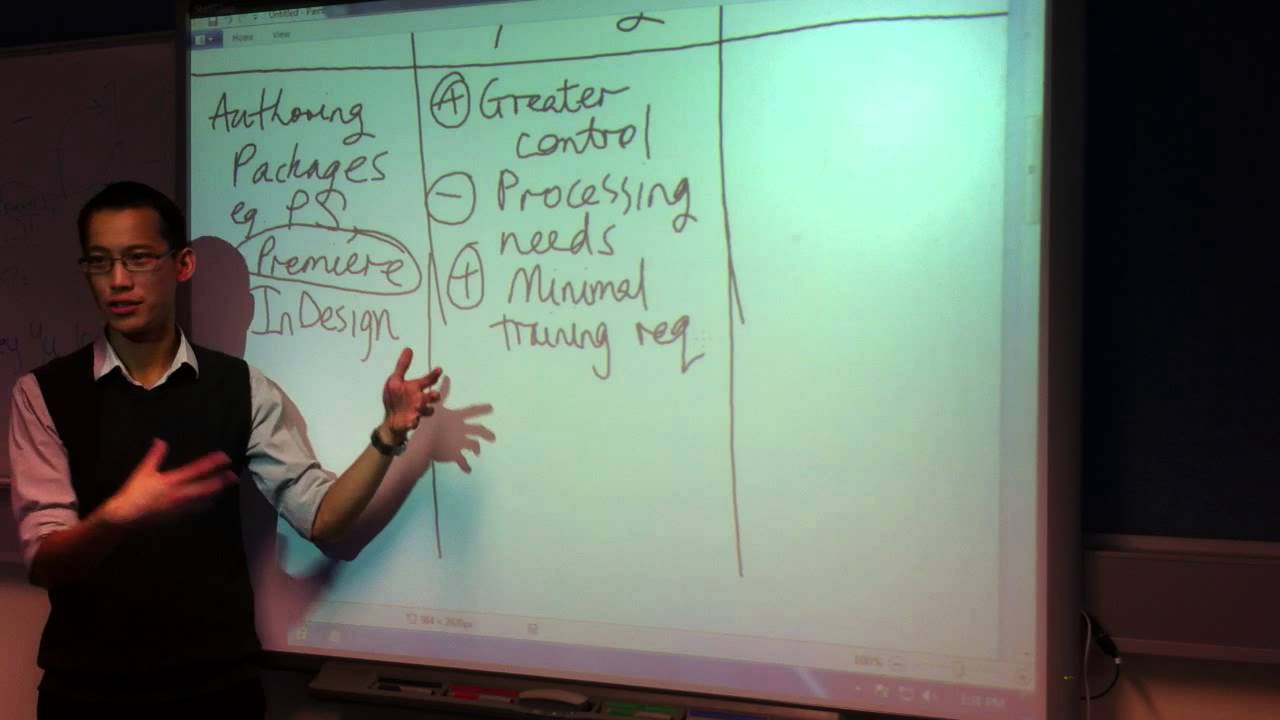 Untitled - Paint
Home View
Authoring
Packages
eg PS,
Premiere
InDesign
+ Greater
control
- Processing
needs
+ Minimal
training req
100%